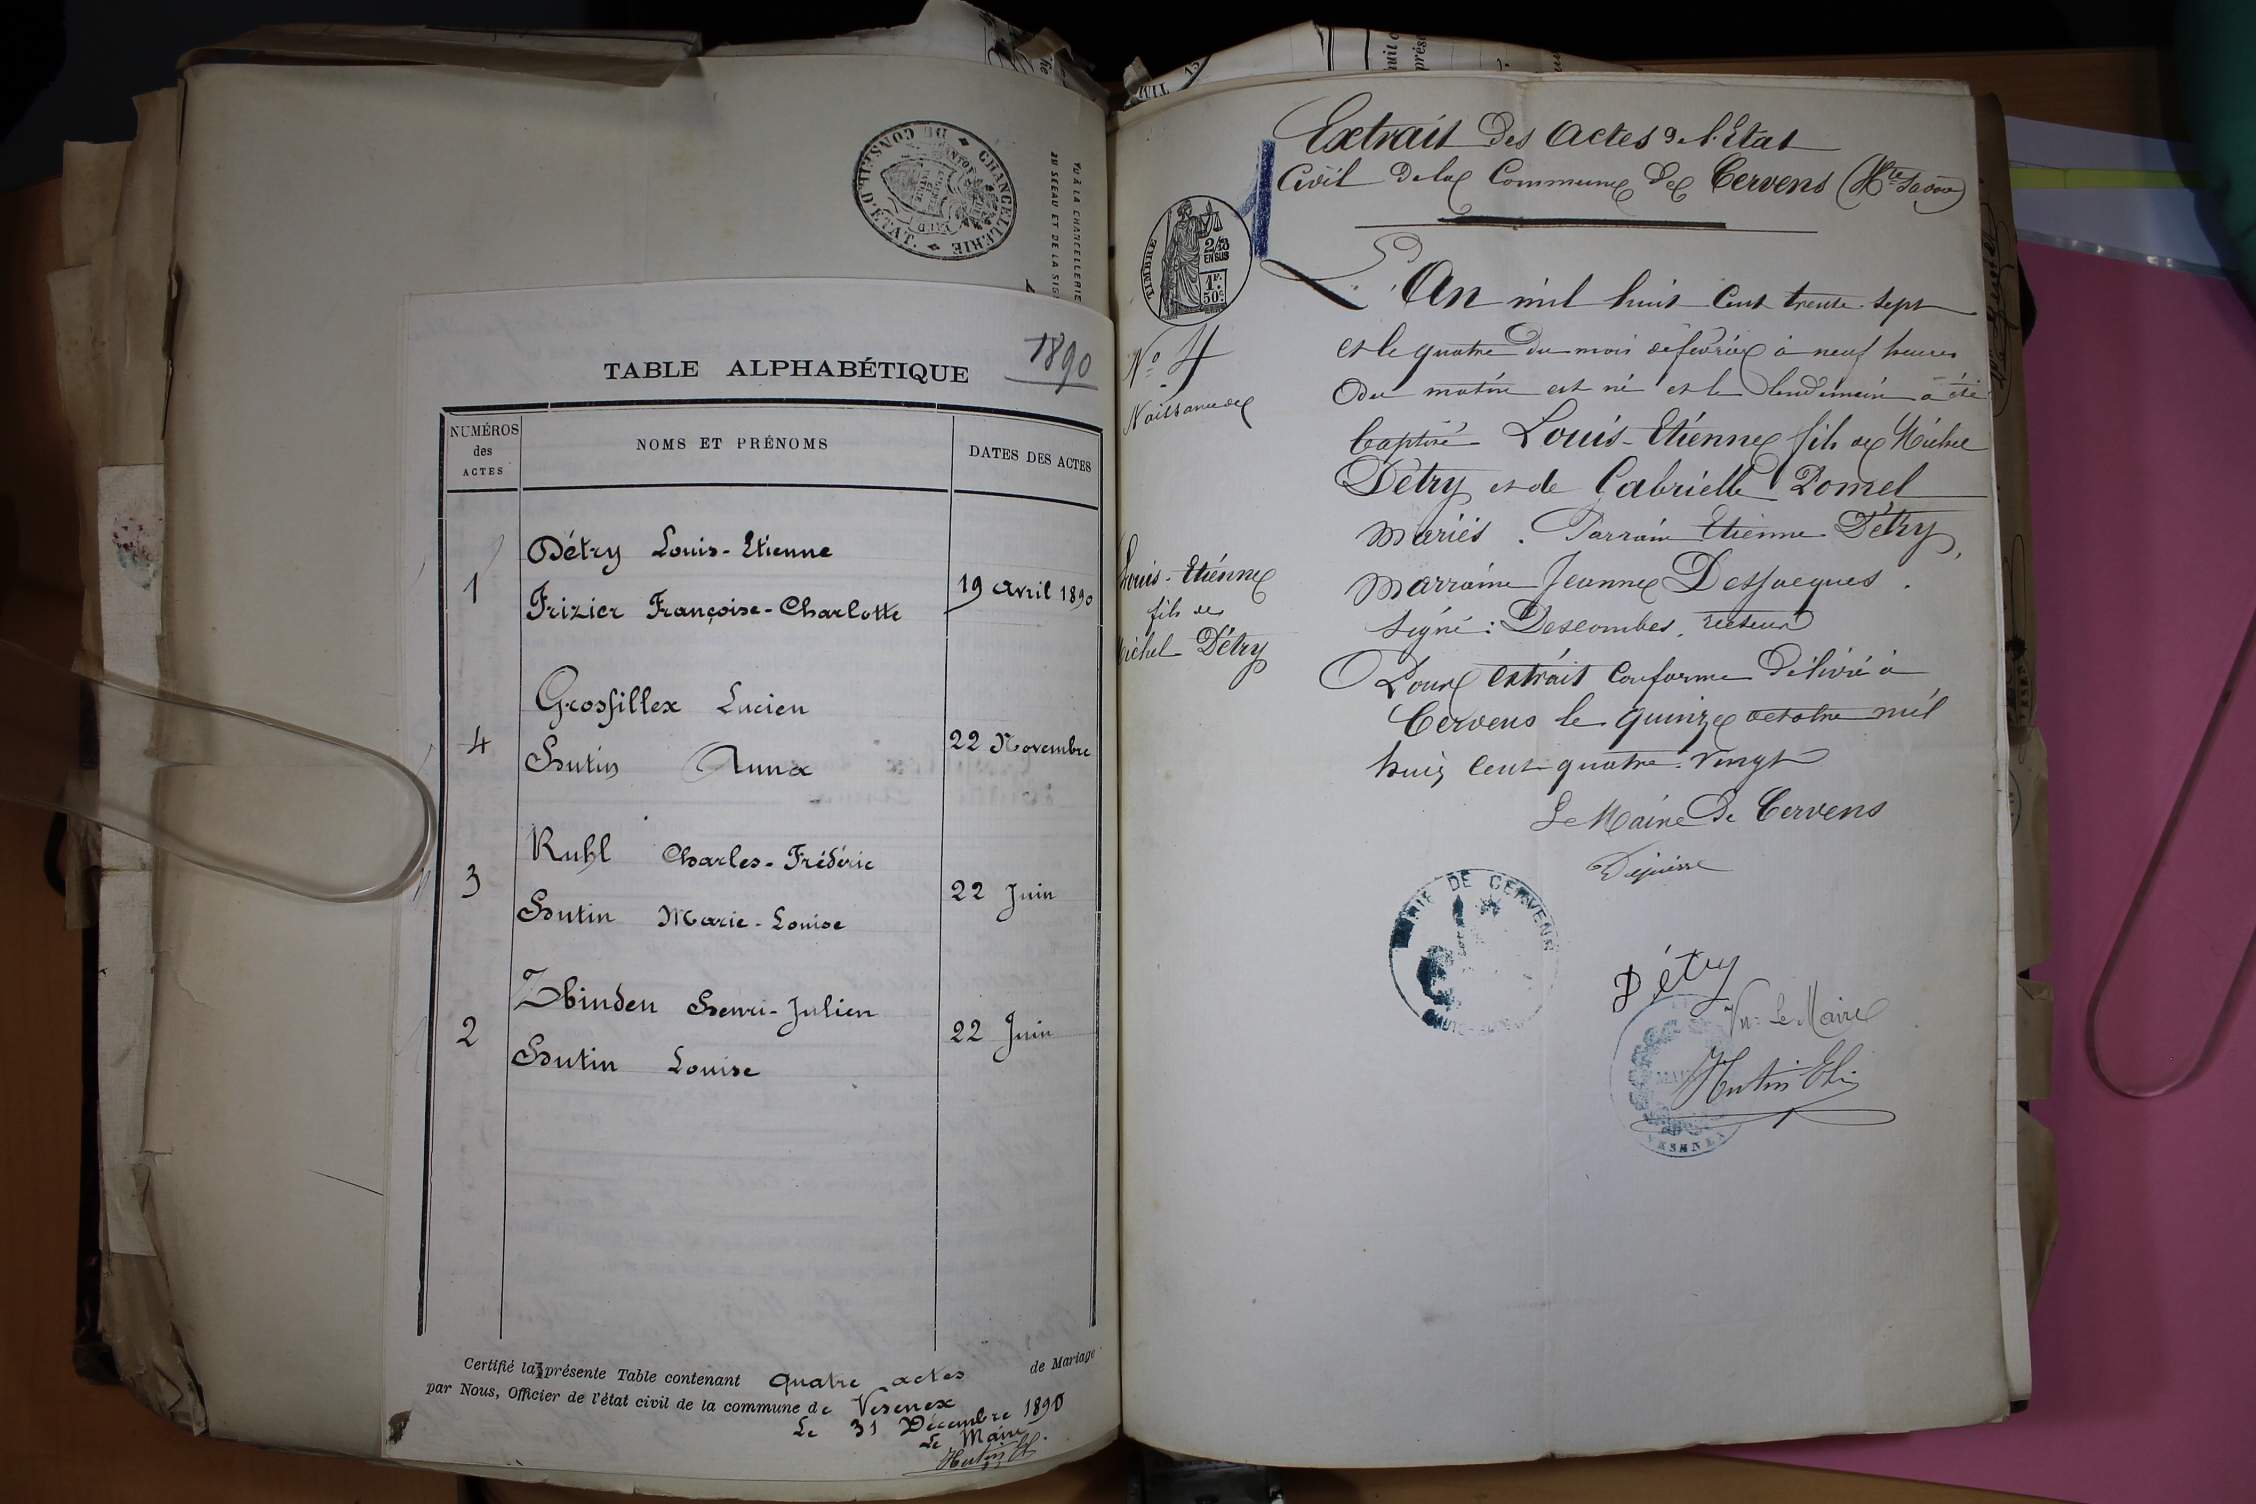 CHANCELLERIE
D'ÉTAT.
DU CONSEIL
VU À LA CHANCELLERIE
AU SCEAU ET DE LA SIG
1890
TABLE ALPHABÉTIQUE
NUMÉROS
des
ACTES
NOMS ET PRÉNOMS
DATES DES ACTES
Détry Louis-Etienne
1
19 Avril 1890
Frizier Françoise-Charlotte
Grosfillex Lucien
4
22 Novembre
Hutin Anna
Ruhl Charles-Frédéric
3
22 Juin
Hutin Marie-Louise
Zbinden Henri-Julien
2
22 Juin
Hutin Louise
Certifié la présente Table contenant quatre actes de Mariage
par Nous, Officier de l'état civil de la commune de Vesenex
Le 31 Décembre 1890
Le Maire
Hutin
Extrait des actes de l'Etat
Civil de la Commune de Cervens (Hte Savoie)
TIMBRE
2/10
EN SUS
1F.
50c.
L'An mil huit cent trente sept
et le quatre du mois de février à neuf heures
du matin est né et le lendemain a été
baptisé Louis-Etienne fils de Michel
Détry et de Gabrielle Pomel
mariés. Parrain Etienne Détry,
marraine Jeanne Desjacques.
Signé: Descombes, recteur
Pour extrait conforme délivré à
Cervens le quinze octobre mil
huit cent quatre-vingt
Le Maire de Cervens
No 4
Naissance de
Louis-Etienne
fils de
Michel Détry
MAIRIE DE CERVENS
Détry
Vu: Le Maire
Hutin